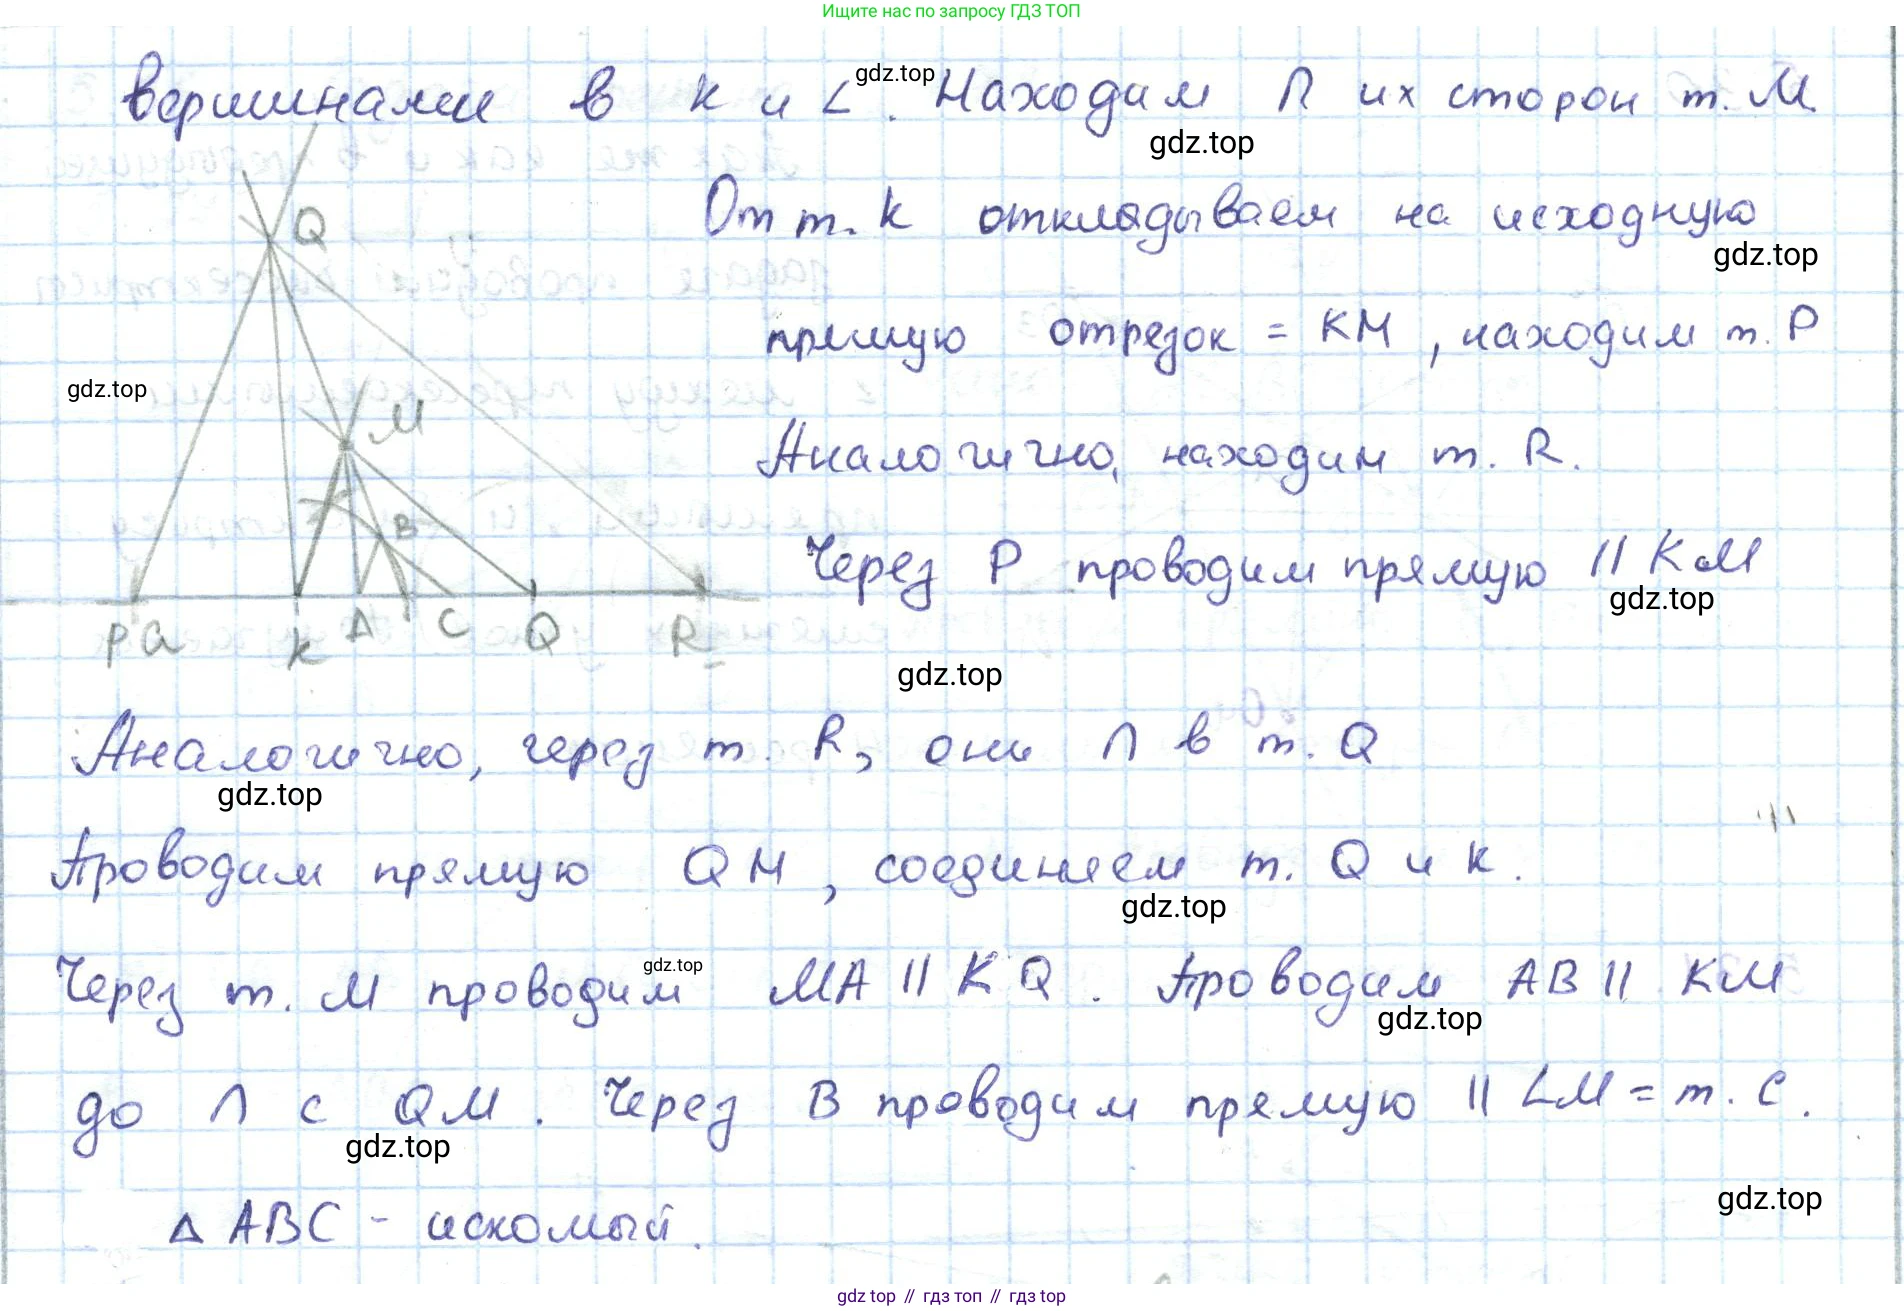 Ищите нас по запросу ГДЗ ТОП
вершинами в K и L. Находим ∩ их сторон т. M.
gdz.top
gdz.top
От т. K откладываем на исходную
gdz.top
прямую отрезок = KM, находим т. P
gdz.top
Аналогично, находим т. R.
Через P проводим прямую || KM
gdz.top
Q
M
B
P a K A C Q R
gdz.top
Аналогично, через т. R, они ∩ в т. Q
gdz.top
Проводим прямую QM, соединяем т. Q и K.
gdz.top
Через т. M проводим MA || KQ. Проводим AB || KM
gdz.top
gdz.top
до ∩ с QM. Через B проводим прямую || LM = т. C.
gdz.top
gdz.top
∆ ABC - искомый.
gdz top // гдз топ // gdz top